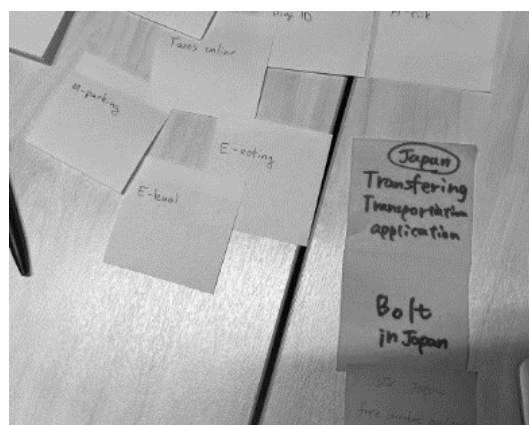 Taxes online
M-parking
E-voting
E-kool
Japan
Transfering
Transportation
application
Bolt
in Japan
Japan
free